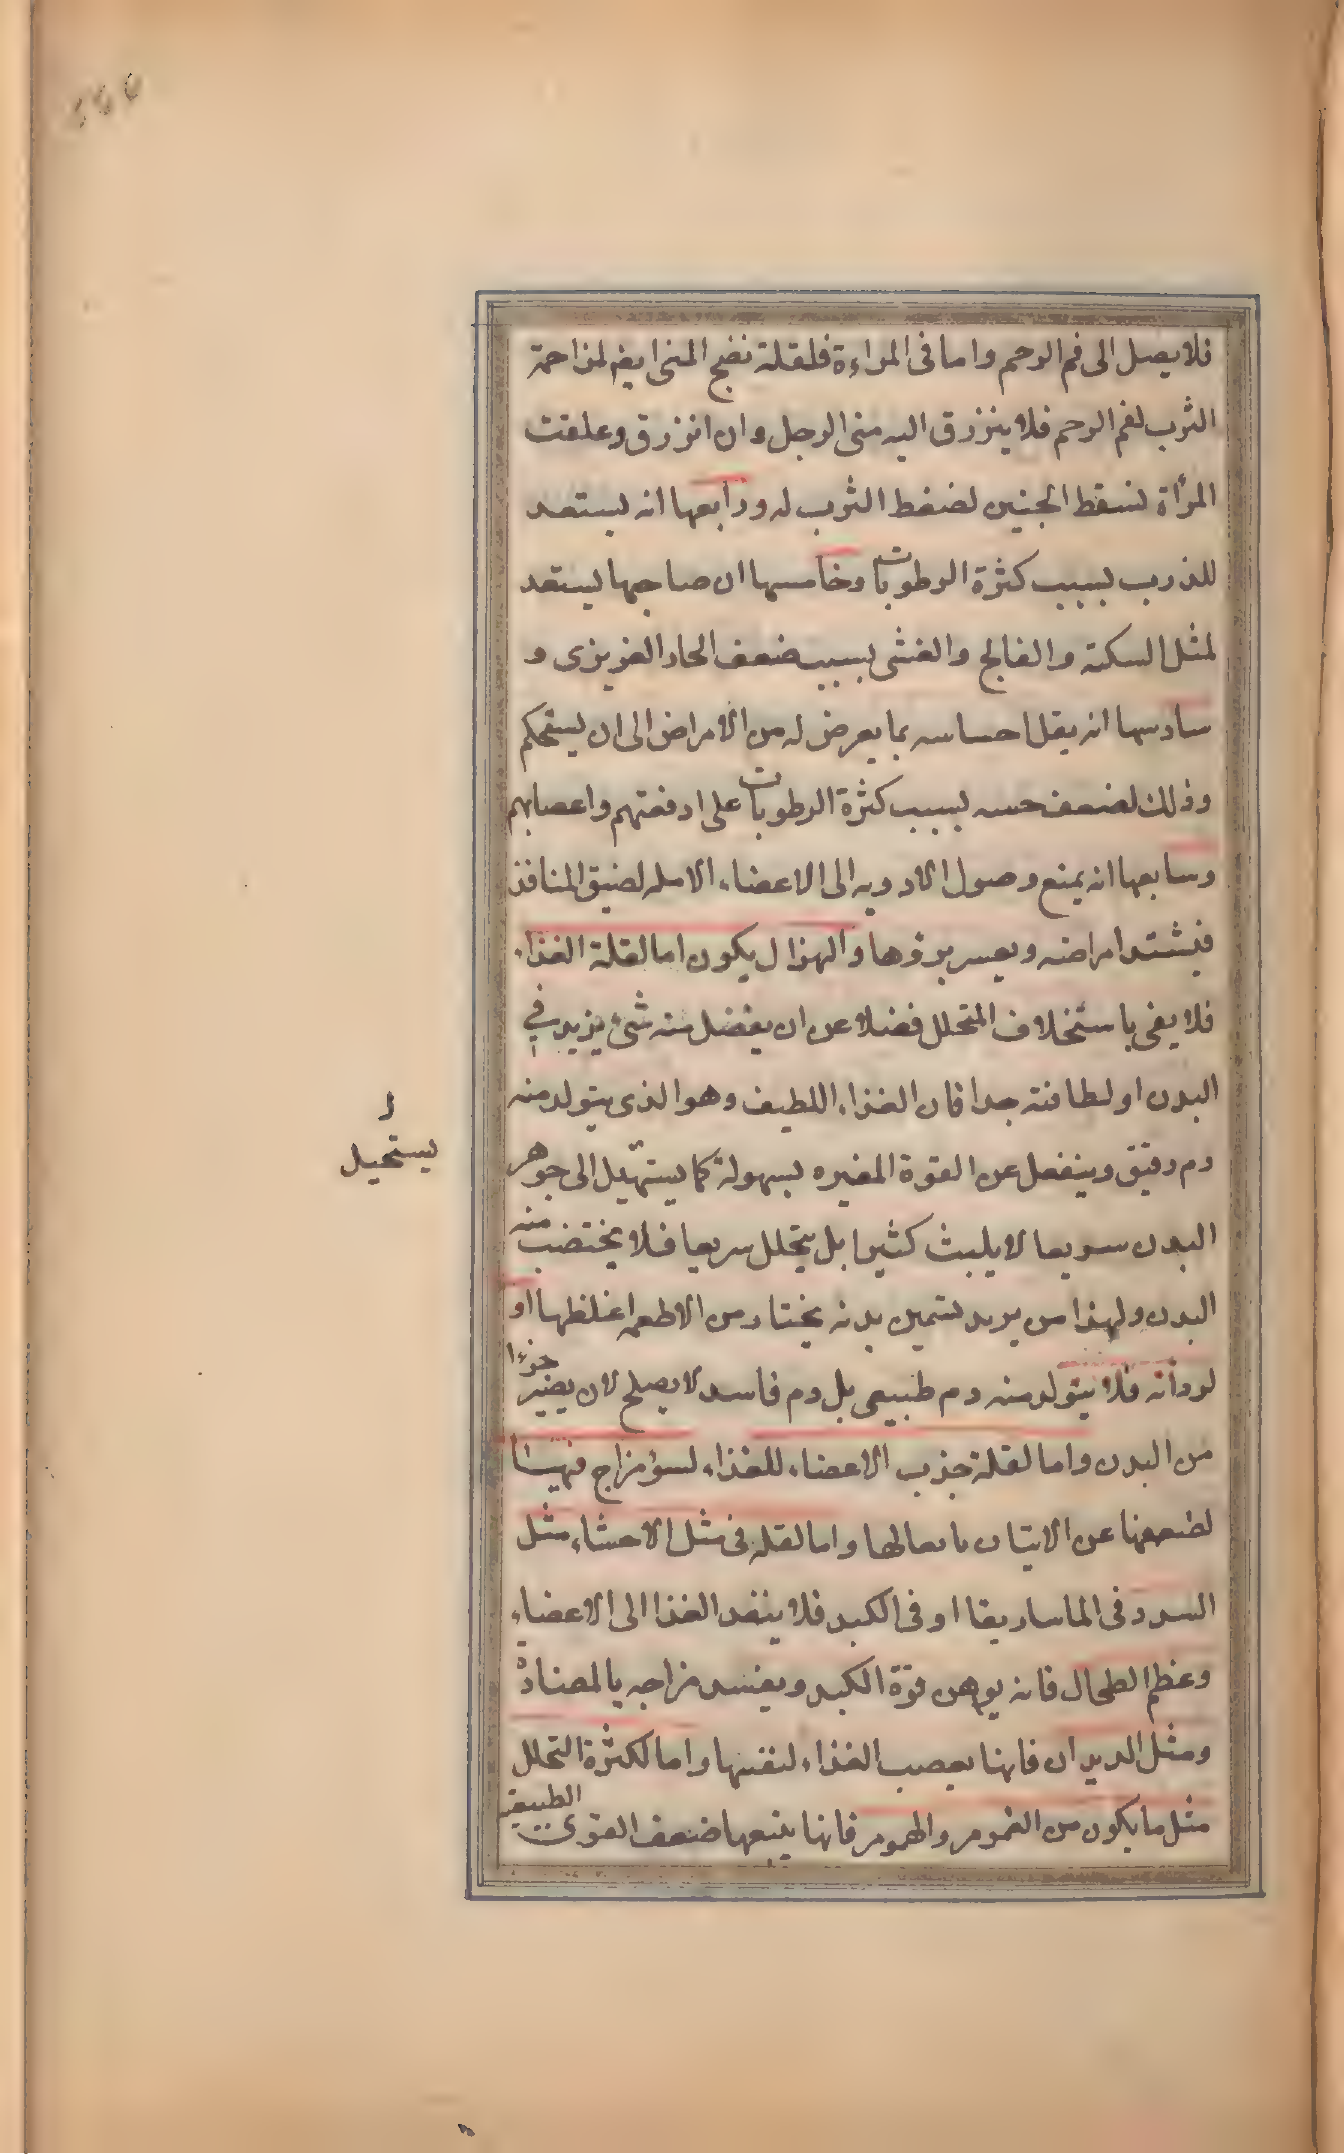 فلا يصل الى فم الرحم واما فى المراءة فلقلة نضج المنى ايضا لمزاحمة
الثرب لفم الرحم فلا ينزرق اليه منى الرجل وان انزرق وعلقت
المرأة تسقط الجنين لضغط الثرب له ورابعها انه يستعد
للذرب بسبب كثرة الرطوبات وخامسها ان صاحبها يستعد
لمثل السكتة والفالج والغشى بسبب ضعف الحار الغريزى و
سادسها انه يقل احساسه بما يعرض له من الامراض الى ان يستحكم
وذلك لضعف حسه بسبب كثرة الرطوبات على ادمغتهم واعصابهم
وسابعها انه يمنع وصول الادويه الى الاعضاء الامله لضيق المنافذ
فيشتد امراضه ويعسر بروٴها والهزال يكون اما لقلة الغذاء
فلا يفى باستخلاف المتحلل فضلا عن ان يفضل منه شئ يزيد في
البدن او لطافته جدا فان الغذاء اللطيف وهو الذى يتولد منه
دم رقيق وينفعل عن القوة المغيره بسهولة كما يستهيل الى جوهر
البدن سريعا لا يلبث كثيرا بل يتحلل سريعا فلا يختضب منه
البدن ولهذا من يريد تسمين بدنه يختار من الاطعمه اغلظها او
لردأته فلا يتولد منه دم طبيعى بل دم فاسد لا يصلح لان يصير جزءا
من البدن واما لقلة جذب الاعضاء للغذاء لسوٴ مزاج فيها
لضعفها عن الاتيان بافعالها واما لقله فى مثل الاحشاء مثل
السدد فى الماساريقا او فى الكبد فلا ينفد الغذا الى الاعضاء
وعظم الطحال فانه يوهن قوة الكبد ويفسد مزاجه بالمضادة
ومثل الديدان فانها يغصب الغذاء لنفسها واما لكثرة التحلل
مثل ما يكون من الغموم والهموم فانها يتبعها ضعف القوى الطبيعيه
يستحيل